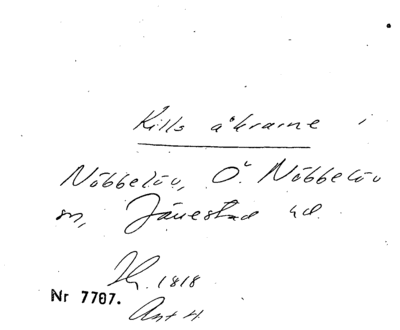 Kills åkrarne i
Nöbbelöv, Ö. Nöbbelöv
sn, Järrestad hd.
Sk. 1818
Nr 7707.
Ant 4